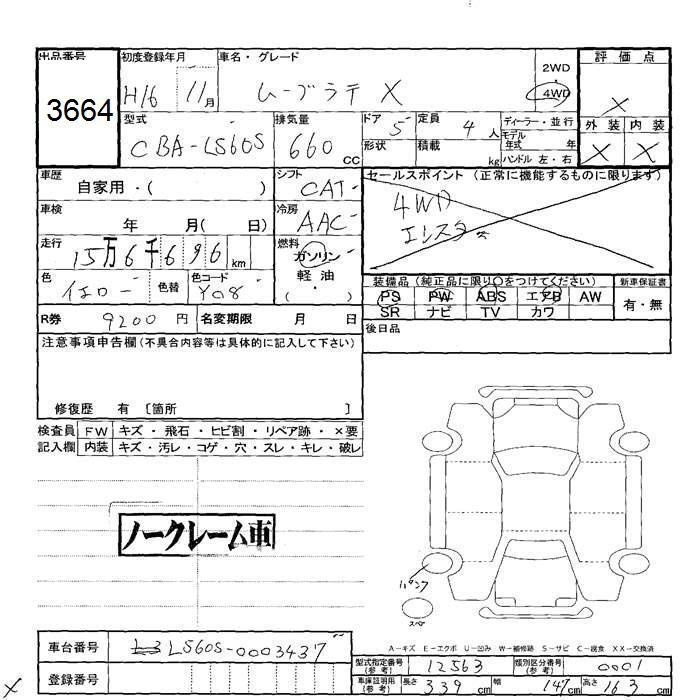 出品番号 初度登録年月 車名・グレード 評価点
3664 H16 11月 ムーブラテ X 2WD・4WD X
型式 排気量 ドア 定員 ディーラー・並行 外装 内装
CBA-L560S 660 cc 5 4人 モデル年式 年 X X
形状 積載 kg ハンドル 左・右
車歴 シフト セールスポイント (正常に機能するものに限ります)
自家用・( ) CAT
車検 冷房 4WD
年 月( 日) AAC エレスタ
走行 燃料
15万6千696km ガソリン
軽油
・( )
色 色替 色コード 装備品 (純正品に限り○をつけてください) 新車保証書
イエロー Y08 PS PW ABS エアB AW 有・無
SR ナビ TV カワ
R券 9200円 名変期限 月 日 後日品
注意事項申告欄(不具合内容等は具体的に記入して下さい)
修復歴 有 [箇所 ]
検査員 FW キズ・飛石・ヒビ割・リペア跡・×要
記入欄 内装 キズ・汚レ・コゲ・穴・スレ・キレ・破レ
ノークレーム車
パンク
スペア
A-キズ E-エクボ U-凹み W-補修跡 S-サビ C-腐食 XX-交換済
車台番号 L560S-0003437
型式指定番号(参考) 12563 類別区分番号(参考) 0001
登録番号
車庫証明用(参考) 長さ 339cm 幅 147cm 高さ 163cm
X